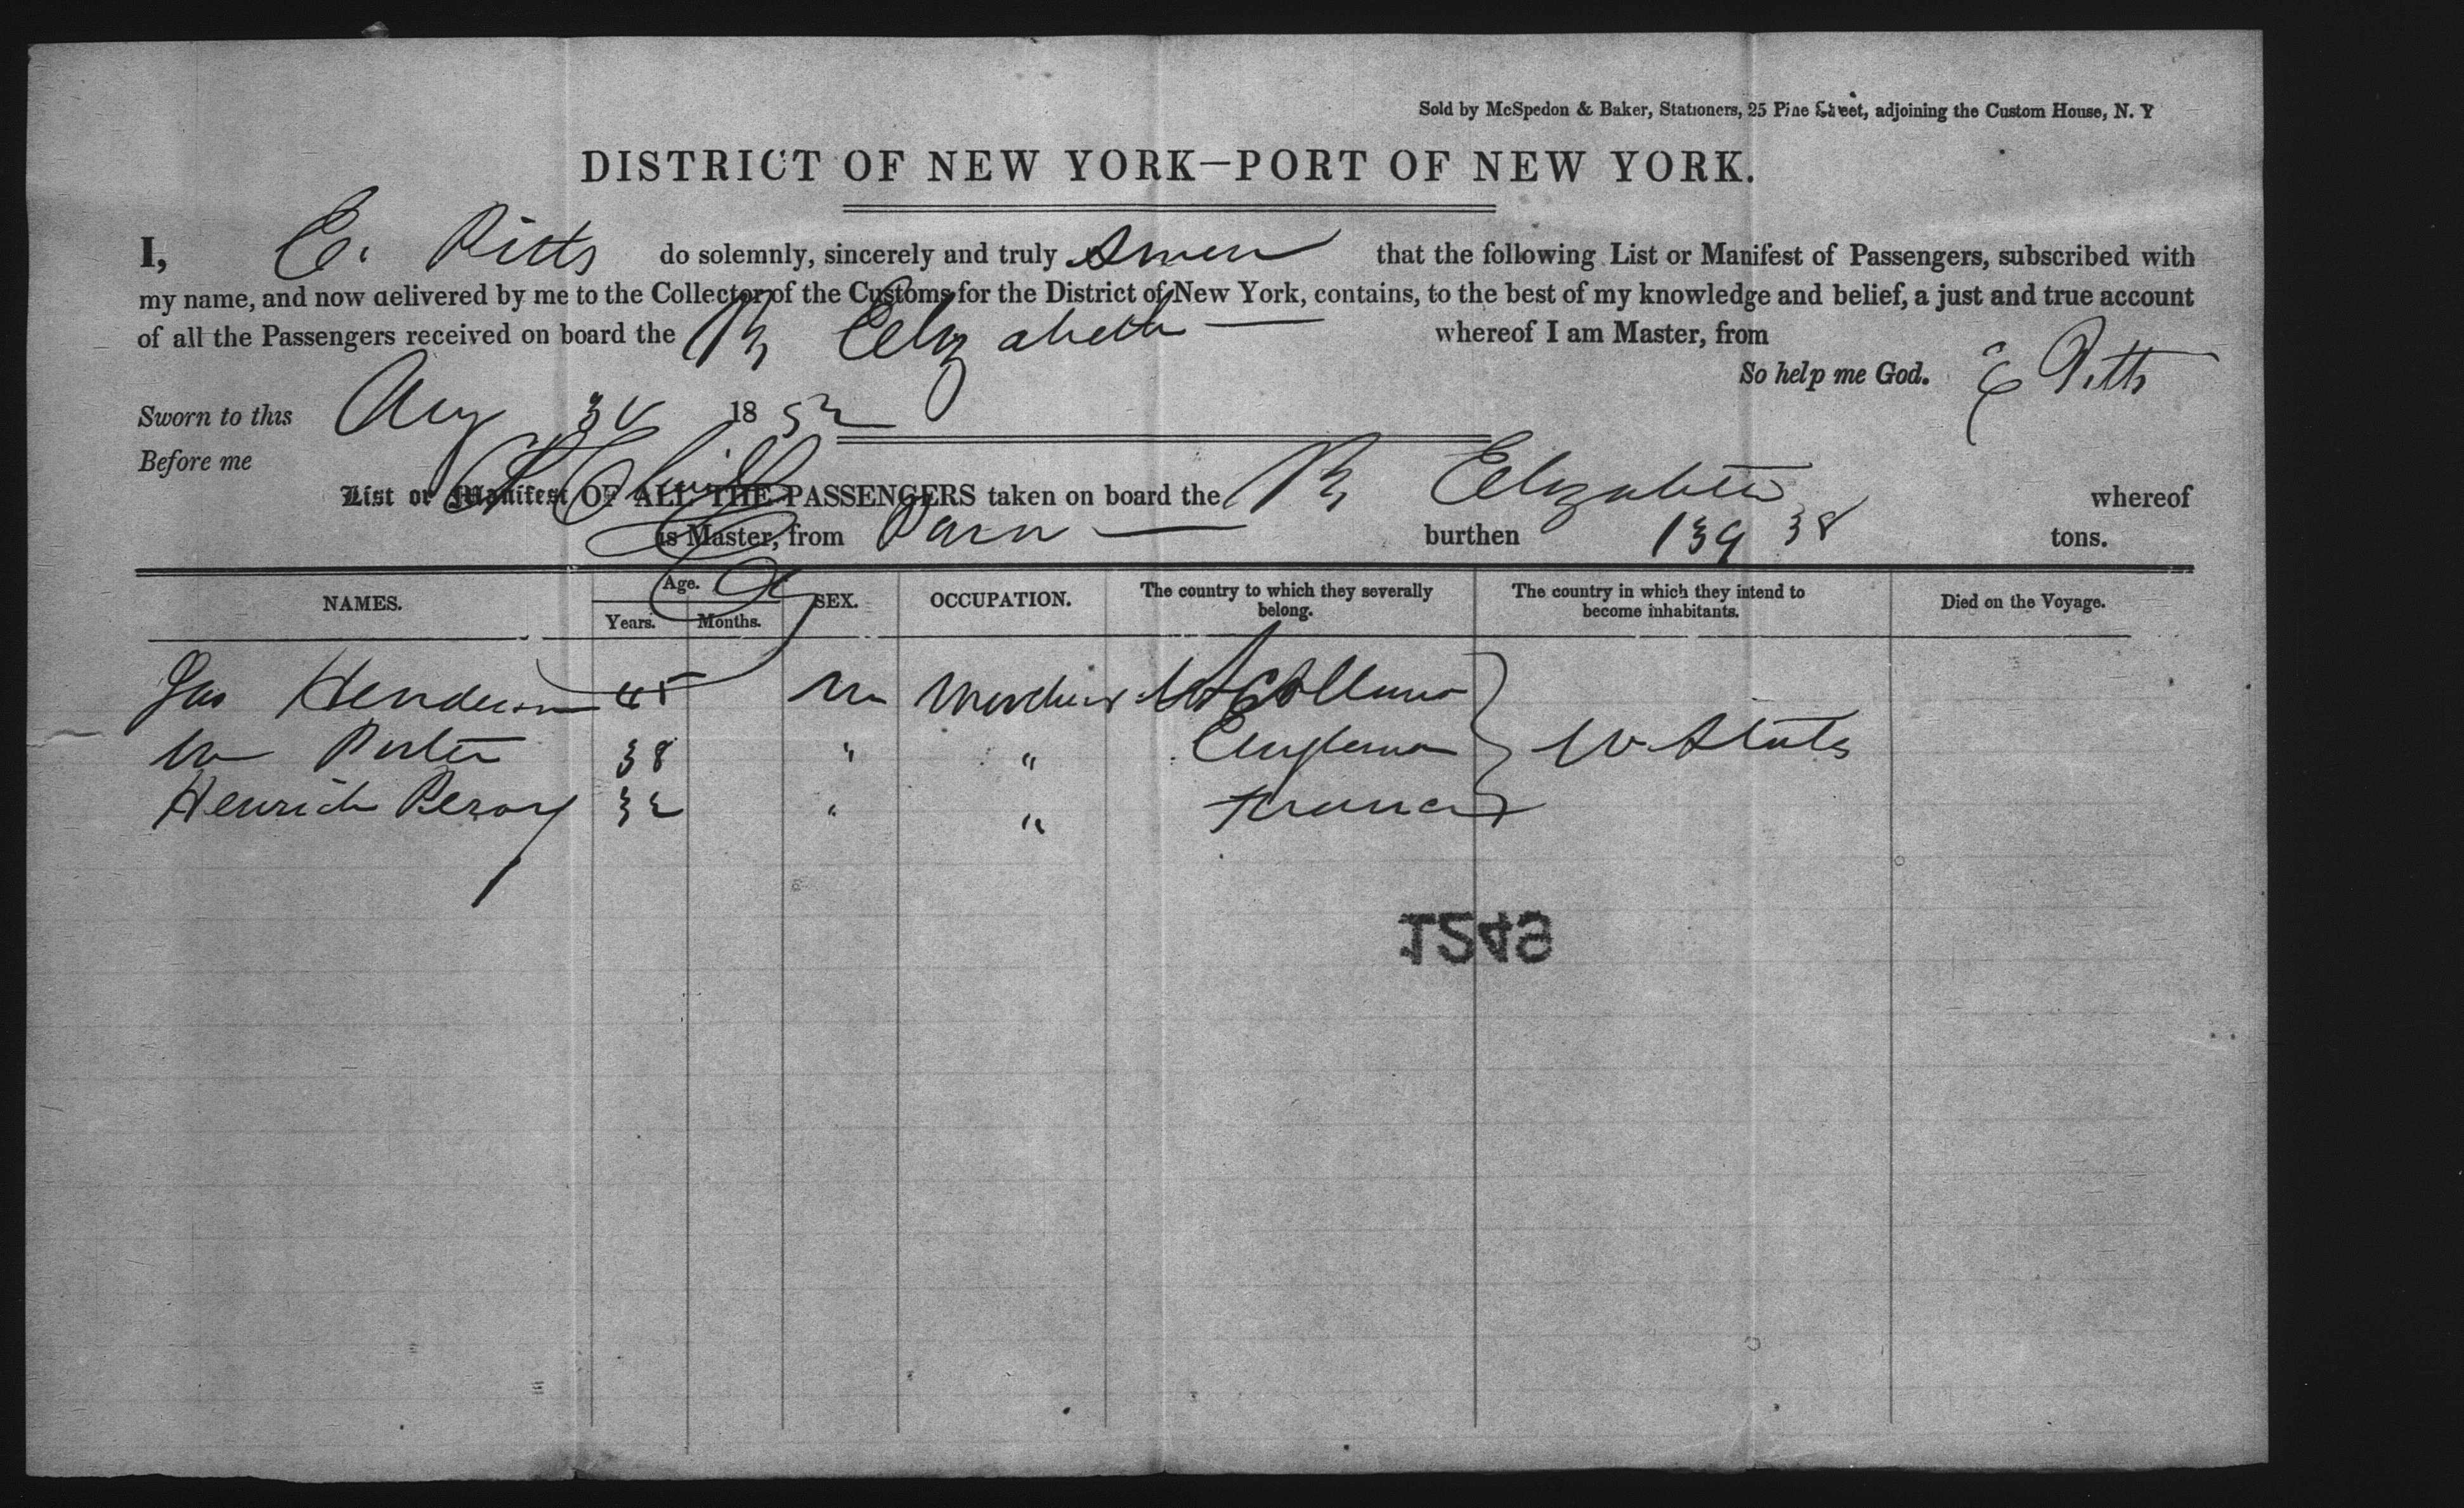 Sold by McSpedon & Baker, Stationers, 25 Pine Street, adjoining the Custom House, N. Y
DISTRICT OF NEW YORK—PORT OF NEW YORK.
I, E. Pitts do solemnly, sincerely and truly Swear that the following List or Manifest of Passengers, subscribed with
my name, and now delivered by me to the Collector of the Customs for the District of New York, contains, to the best of my knowledge and belief, a just and true account
of all the Passengers received on board the Br Elizabeth whereof I am Master, from
So help me God. E Pitts
Sworn to this Aug 1852
Before me
List or Manifest OF ALL THE PASSENGERS taken on board the Br Elizabeth whereof
is Master, from Para burthen 139 38 tons.
NAMES. Age. SEX. OCCUPATION. The country to which they severally belong. The country in which they intend to become inhabitants. Died on the Voyage.
Years. Months.
Jas Henderson 45 M
Wm Porter 38 " " U States
32 " " France
1548